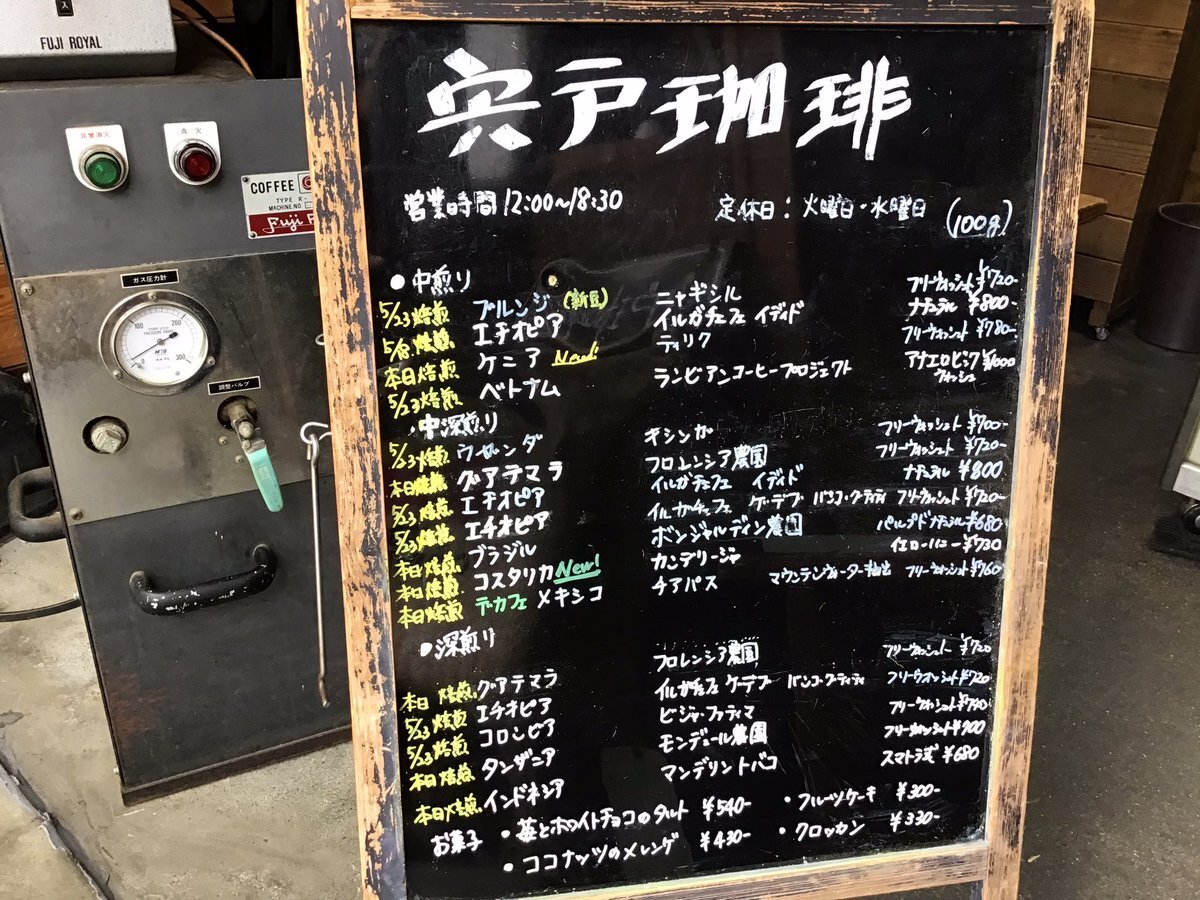 入
FUJI ROYAL
非常消火
点火
COFFEE
TYPE R-
MACHINE NO.
Fuji
ガス圧力計
100
200
300
調整バルブ
宍戸珈琲
営業時間 12:00〜18:30 定休日：火曜日・水曜日 (100g)
●中煎り
5/23焙煎 ブルンジ (新豆) ニャギシル フリーウォッシュト ¥720-
5/8焙煎 エチオピア イルガチェフェ イディド ナチュラル ¥800-
本日焙煎 ケニア New! ティリク フリーウォッシュト ¥780-
5/23焙煎 ベトナム ランビアンコーヒープロジェクト アナエロビックウォッシュ ¥1000
・中深煎り
5/23焙煎 ウガンダ キシンガ フリーウォッシュト ¥700-
本日焙煎 グアテマラ フロレンシア農園 フリーウォッシュト ¥720-
5/23焙煎 エチオピア イルガチェフェ イディド ナチュラル ¥800
5/23焙煎 エチオピア イルガチェフェ ゲ・デブ バンコ・グティティ フリーウォッシュト ¥720-
本日焙煎 ブラジル ボンジャルディン農園 パルプドナチュラル ¥680
本日焙煎 コスタリカ New! カンデリージャ イエローハニー ¥730
本日焙煎 デカフェ メキシコ チアパス マウンテンウォーター抽出 フリーウォッシュト ¥760
●深煎り
本日焙煎 グアテマラ フロレンシア農園 フリーウォッシュト ¥720
5/23焙煎 エチオピア イルガチェフェ ゲ・デブ バンコ・グティティ フリーウォッシュト ¥720
5/23焙煎 コロンビア ビジャ・ファティマ フリーウォッシュト
本日焙煎 タンザニア モンデュール農園 フリーウォッシュト ¥700
本日焙煎 インドネシア マンデリントバコ スマトラ式 ¥680
お菓子 ・苺とホワイトチョコのタルト ¥540- ・フルーツケーキ ¥300-
・ココナッツのメレンゲ ¥430- ・クロッカン ¥330-